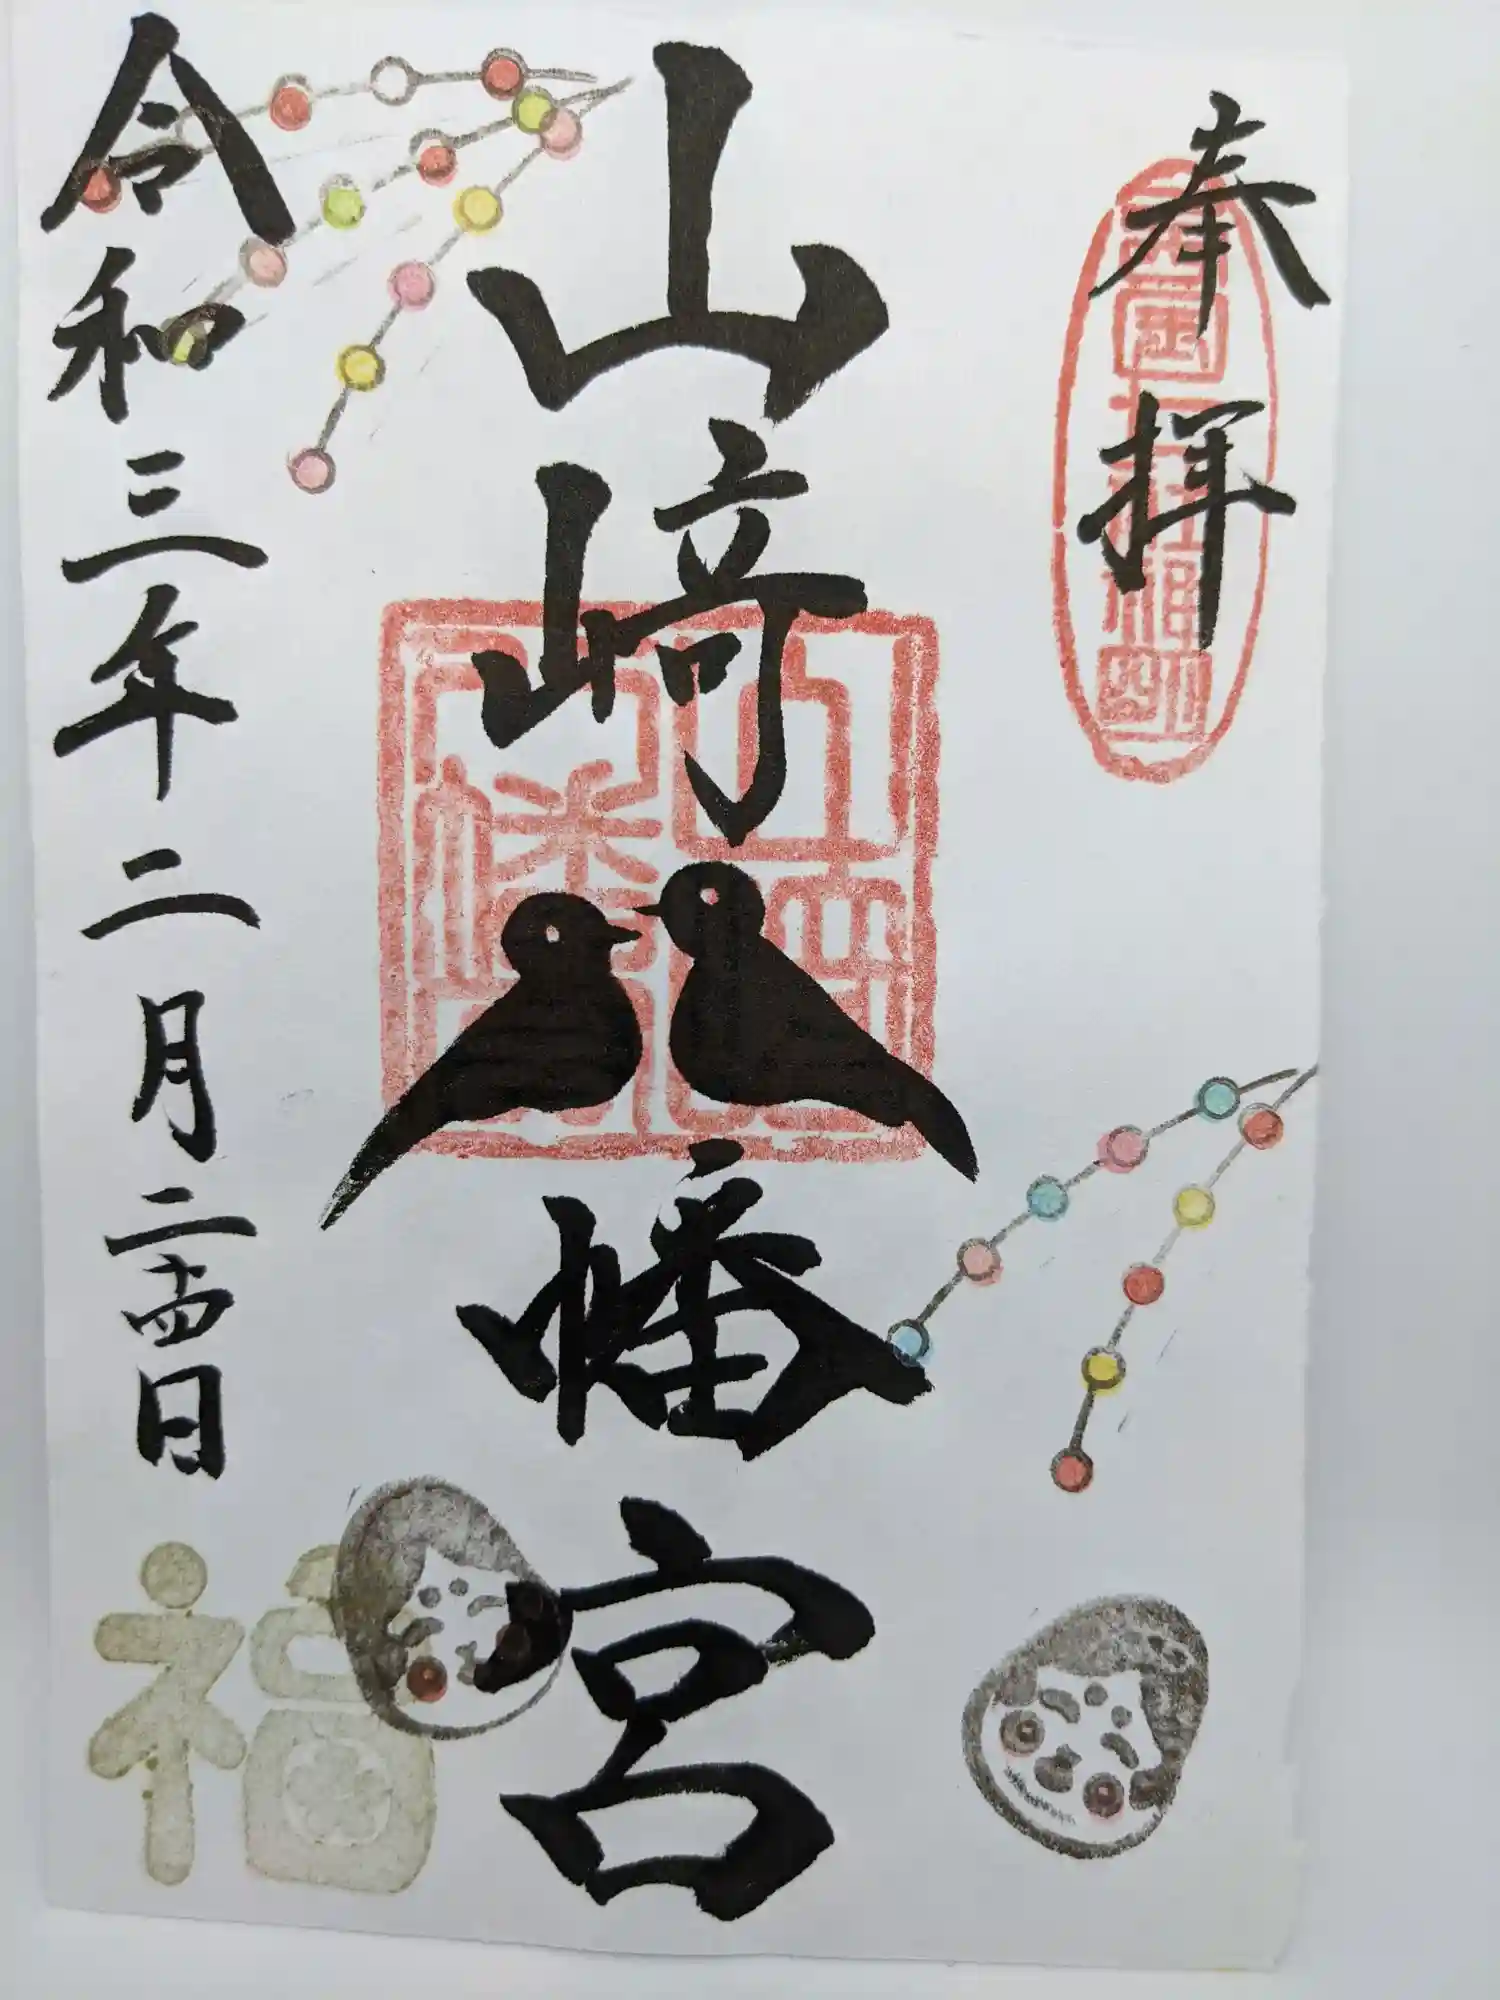 奉拝
山﨑八幡宮
令和三年二月二十四日
福